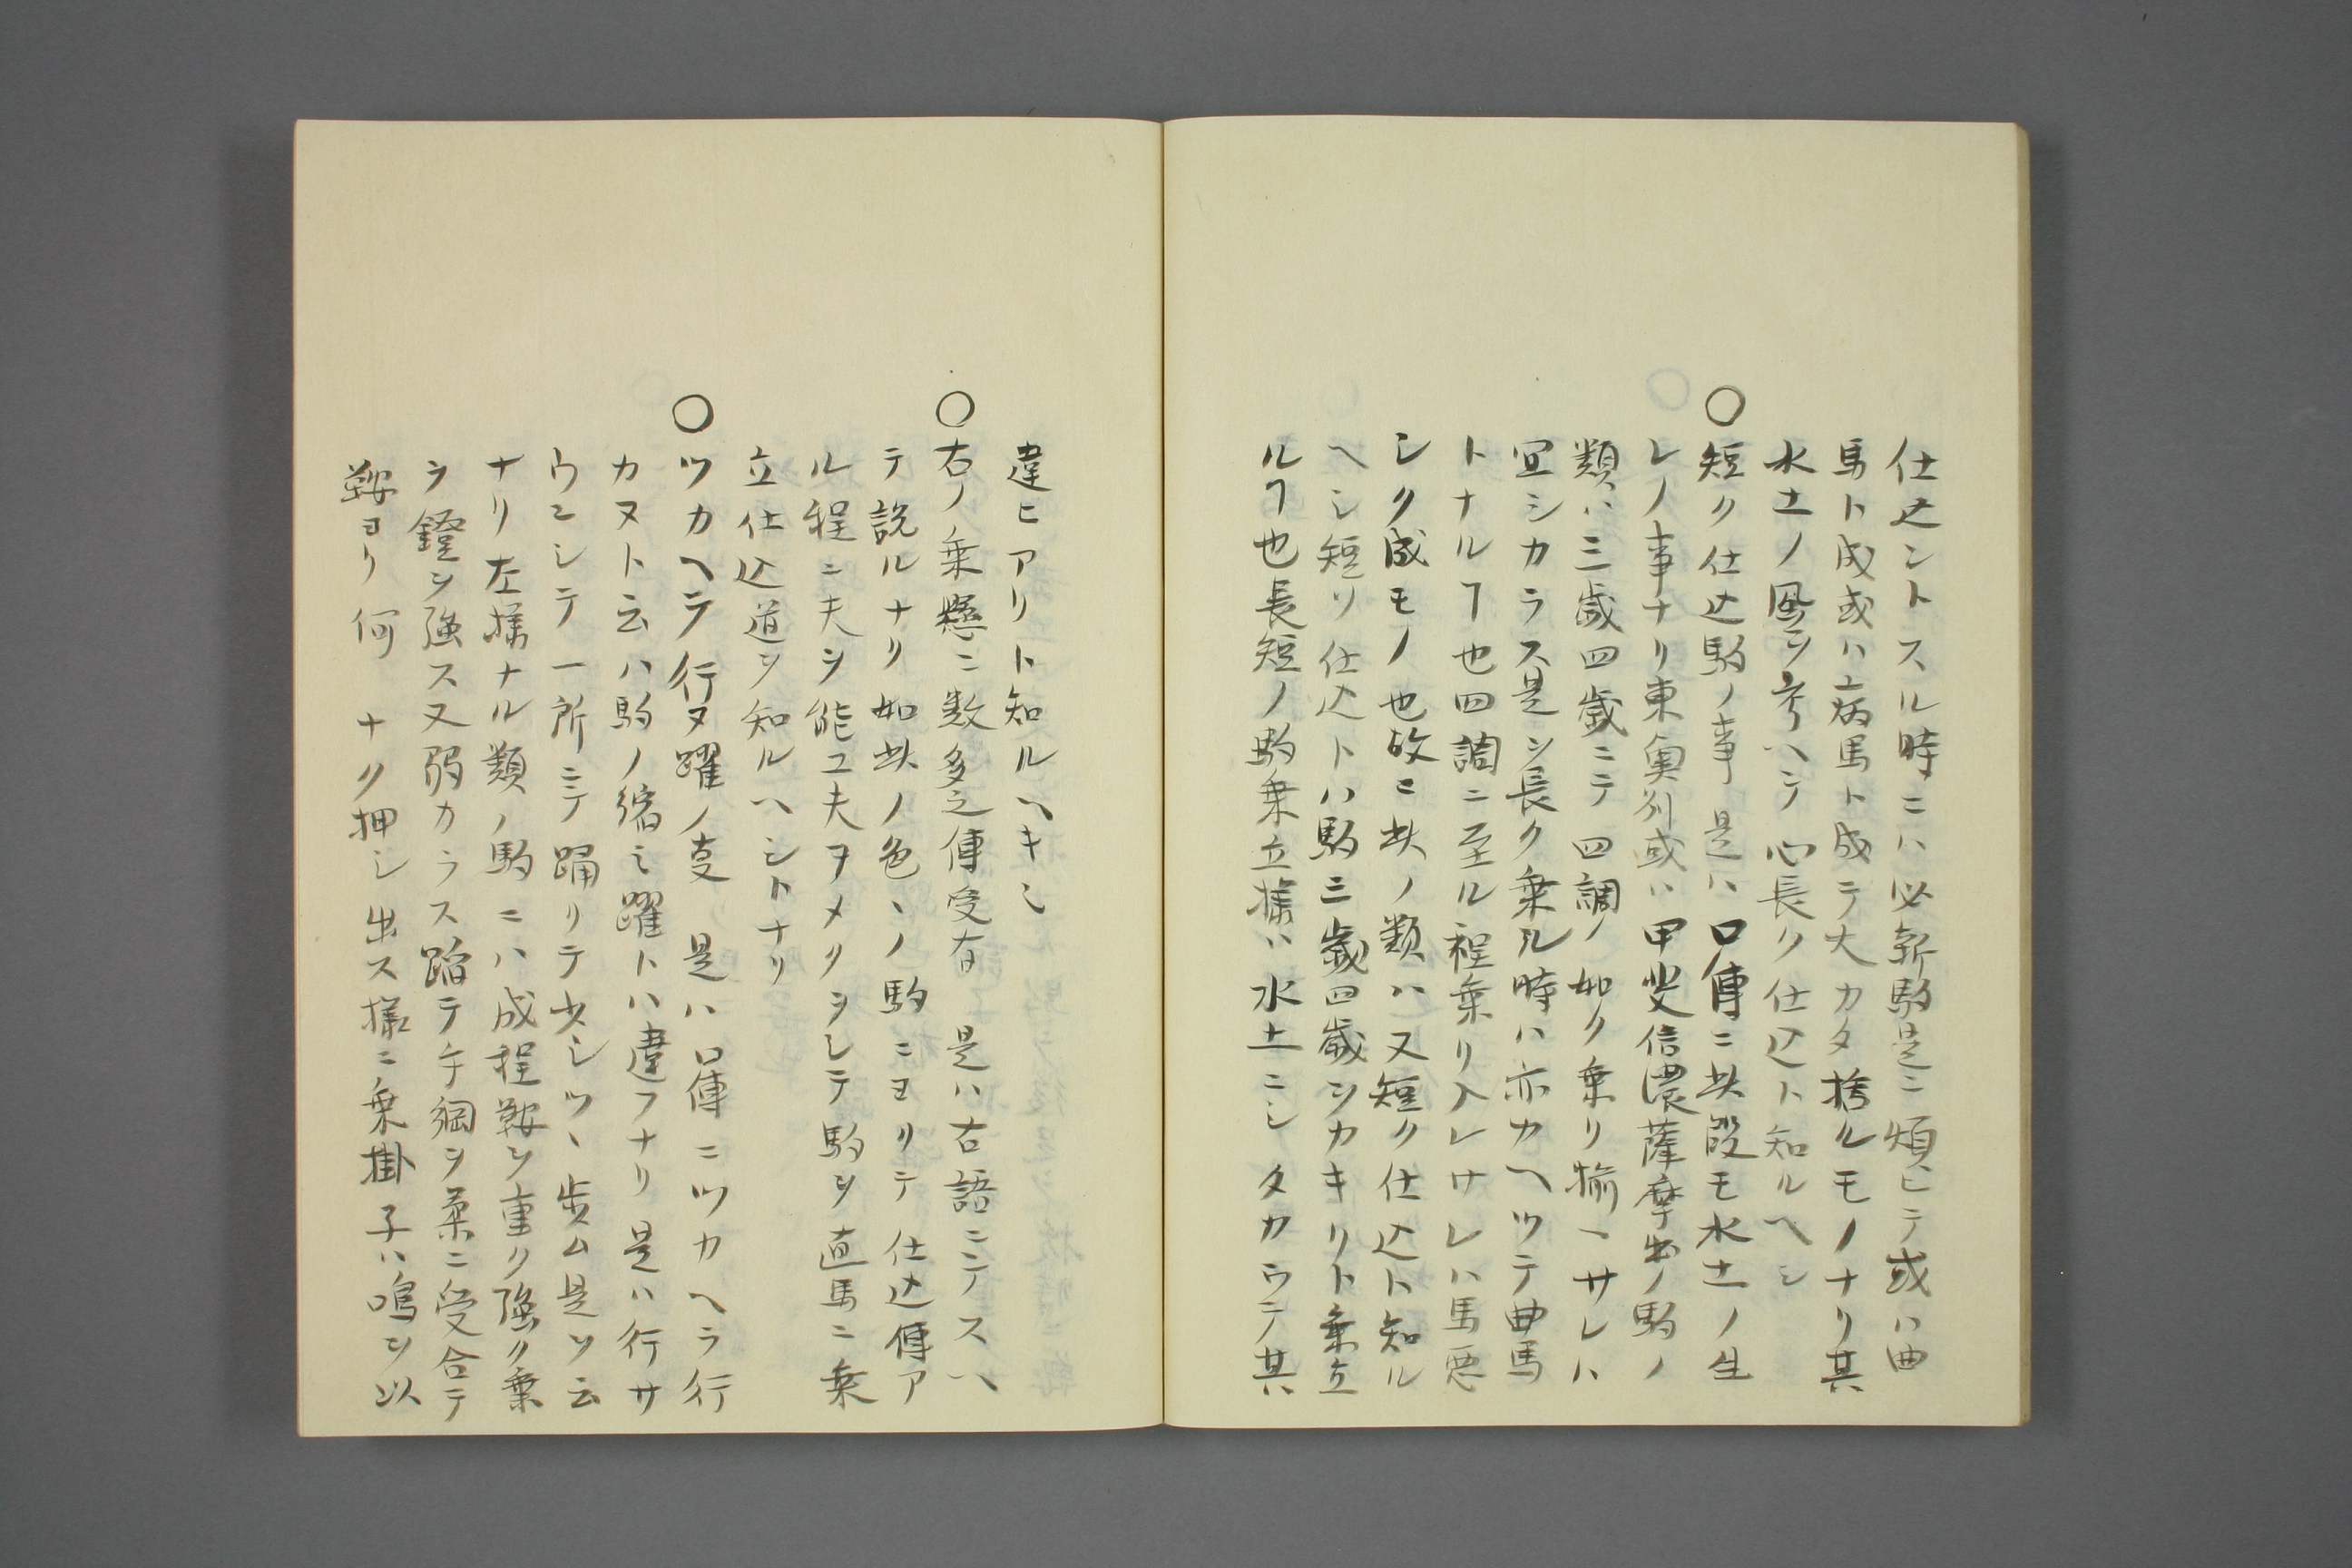 仕込ントスル時ニハ必新駒是ニ煩ヒテ或ハ曲
馬ト成或ハ病馬ト成テ大カタ捨ルモノナリ其
水土ノ風ヲ考ヘテ心長ク仕込ト知ルヘシ
○短ク仕込駒ノ事 是ハ口傳ニ此段モ水土ノ生
レノ事ナリ東奥列或ハ甲斐信濃薩摩出ノ駒ノ
類ハ三歳四歳ニテ四調ノ如ク乗リ揃ヘサレハ
宜シカラス是ヲ長ク乗ル時ハ亦カヘツテ曲馬
トナルヿ也四調ニ至ル程乗リ入レサレハ馬悪
シク成モノ也故ニ此ノ類ハ又短ク仕込ト知ル
ヘシ短ク仕込トハ駒三歳四歳ヲカキリト乗立
ルヿ也長短ノ駒乗立様ハ水土ニシタカウテ其
違ヒアリト知ルヘキシ
○右ノ乗懸ニ数多之傳受有 是ハ古語ニテスハ
テ説ルナリ如此ノ色、ノ駒ニヨリテ仕込傳ア
ル程ニ夫ヲ能エ夫ヲメクラシテ駒ヲ直馬ニ乗
立仕込道ヲ知ルヘシトナリ
○ツカヘテ行ヌ躍ノ叓 是ハ口傳ニツカヘラ行
カヌト云ハ駒ノ縮ミ躍トハ違フナリ是ハ行サ
ウニシテ一所ニテ踊リテ少シツ、歩ム是ヲ云
ナリ左様ナル類ノ駒ニハ成程鞍ヲ重ク強ク乗
ラ鐙ヲ強ス又弱カラス踏テ手綱ヲ柔ニ受合テ
鞍ヨリ何 ナク押シ出ス様ニ乗掛子ハ鳴ヲ以